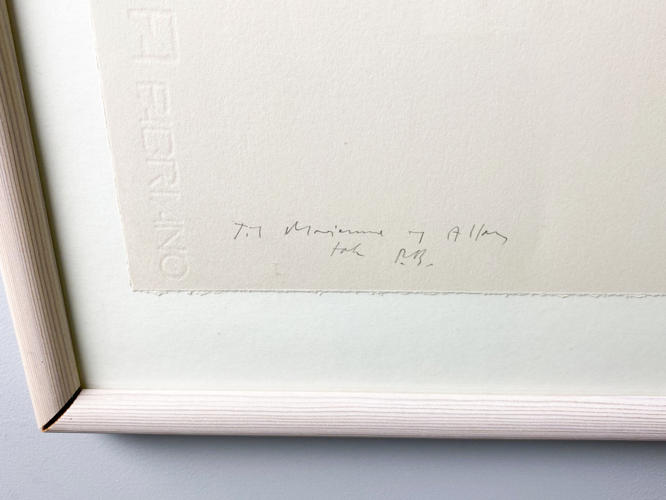 FABRIANO
Til Marianne og Allan
tak P.B.